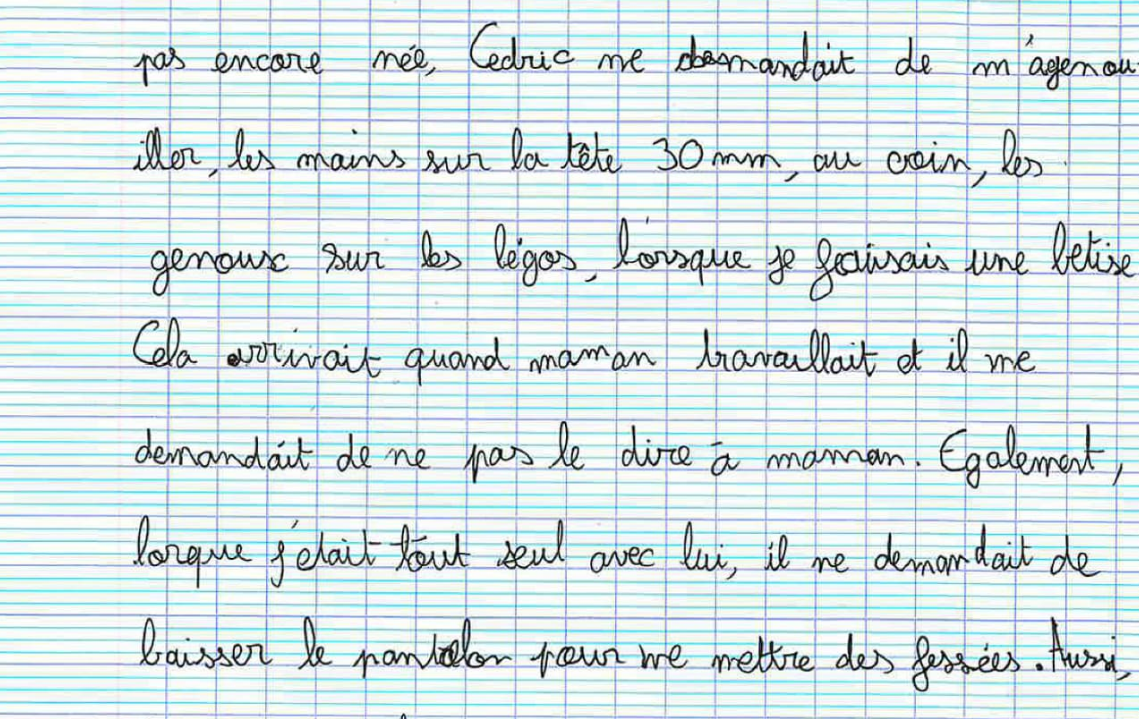 pas encore née, Cedric me demandait de m'agenou
iller, les mains sur la tête 30 mm, au coin, les
genoux sur les légos, lorsque je faisais une betise
Cela arrivait quand maman travaillait et il me
demandait de ne pas le dire à maman. Egalement,
lorque j'etait tout seul avec lui, il me demandait de
baisser le pantalon pour me mettre des fessées. Aussi,